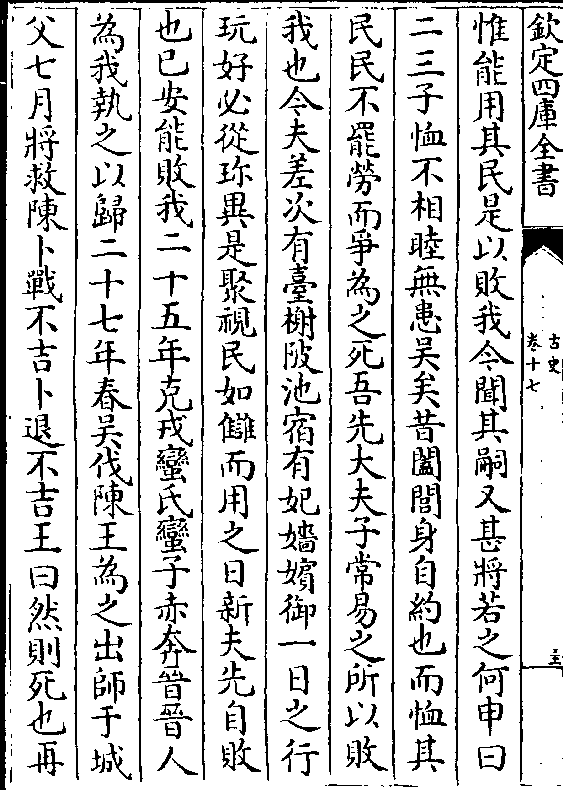 欽定四庫全書
古史
卷十七
惟能用其民是以敗我今聞其嗣又甚將若之何申曰
二三子恤不相睦無患吳矣昔闔閭身自約也而恤其
民民不罷勞而爭為之死吾先大夫子常易之所以敗
我也今夫差次有臺榭陂池宿有妃嬙嬪御一日之行
玩好必從珎異是聚視民如讎而用之日新夫先自敗
也已安能敗我二十五年克戎蠻氏蠻子赤奔晉晉人
為我執之以歸二十七年春吳伐陳王為之出師于城
父七月將救陳卜戰不吉卜退不吉王曰然則死也再